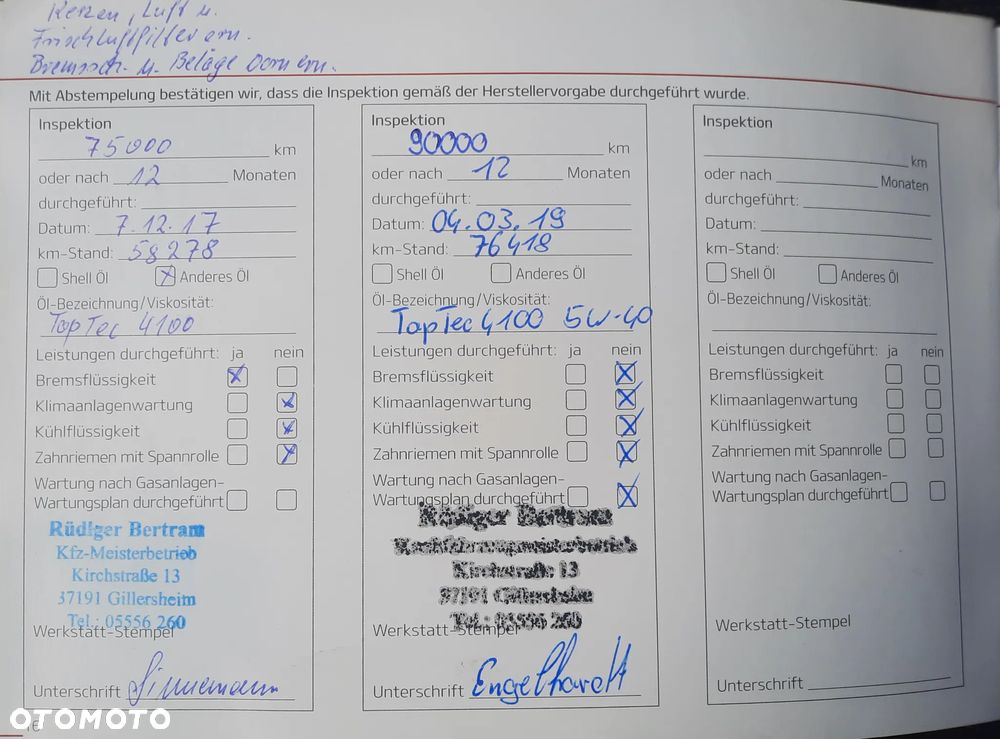 Kerzen, Luft u.
Frischluftfilter ern.
Bremssch. u. Beläge vorn ern.
Mit Abstempelung bestätigen wir, dass die Inspektion gemäß der Herstellervorgabe durchgeführt wurde.
Inspektion
75000 km
oder nach 12 Monaten
durchgeführt:
Datum: 7.12.17
km-Stand: 58278
Shell Öl Anderes Öl
Öl-Bezeichnung/Viskosität:
TopTec 4100
Leistungen durchgeführt: ja nein
Bremsflüssigkeit
Klimaanlagenwartung
Kühlflüssigkeit
Zahnriemen mit Spannrolle
Wartung nach Gasanlagen-
Wartungsplan durchgeführt
Rüdiger Bertram
Kfz-Meisterbetrieb
Kirchstraße 13
37191 Gillersheim
Tel.: 05556 260
Werkstatt-Stempel
Unterschrift
Inspektion
90000 km
oder nach 12 Monaten
durchgeführt:
Datum: 04.03.19
km-Stand: 76418
Shell Öl Anderes Öl
Öl-Bezeichnung/Viskosität:
TopTec 4100 5W-40
Leistungen durchgeführt: ja nein
Bremsflüssigkeit
Klimaanlagenwartung
Kühlflüssigkeit
Zahnriemen mit Spannrolle
Wartung nach Gasanlagen-
Wartungsplan durchgeführt
Rüdiger Bertram
Kraftfahrzeugmeisterbetrieb
Kirchstraße 13
37191 Gillersheim
Tel.: 05556 260
Werkstatt-Stempel
Unterschrift Engelhardt
Inspektion
km
oder nach Monaten
durchgeführt:
Datum:
km-Stand:
Shell Öl Anderes Öl
Öl-Bezeichnung/Viskosität:
Leistungen durchgeführt: ja nein
Bremsflüssigkeit
Klimaanlagenwartung
Kühlflüssigkeit
Zahnriemen mit Spannrolle
Wartung nach Gasanlagen-
Wartungsplan durchgeführt
Werkstatt-Stempel
Unterschrift
OTOMOTO
16